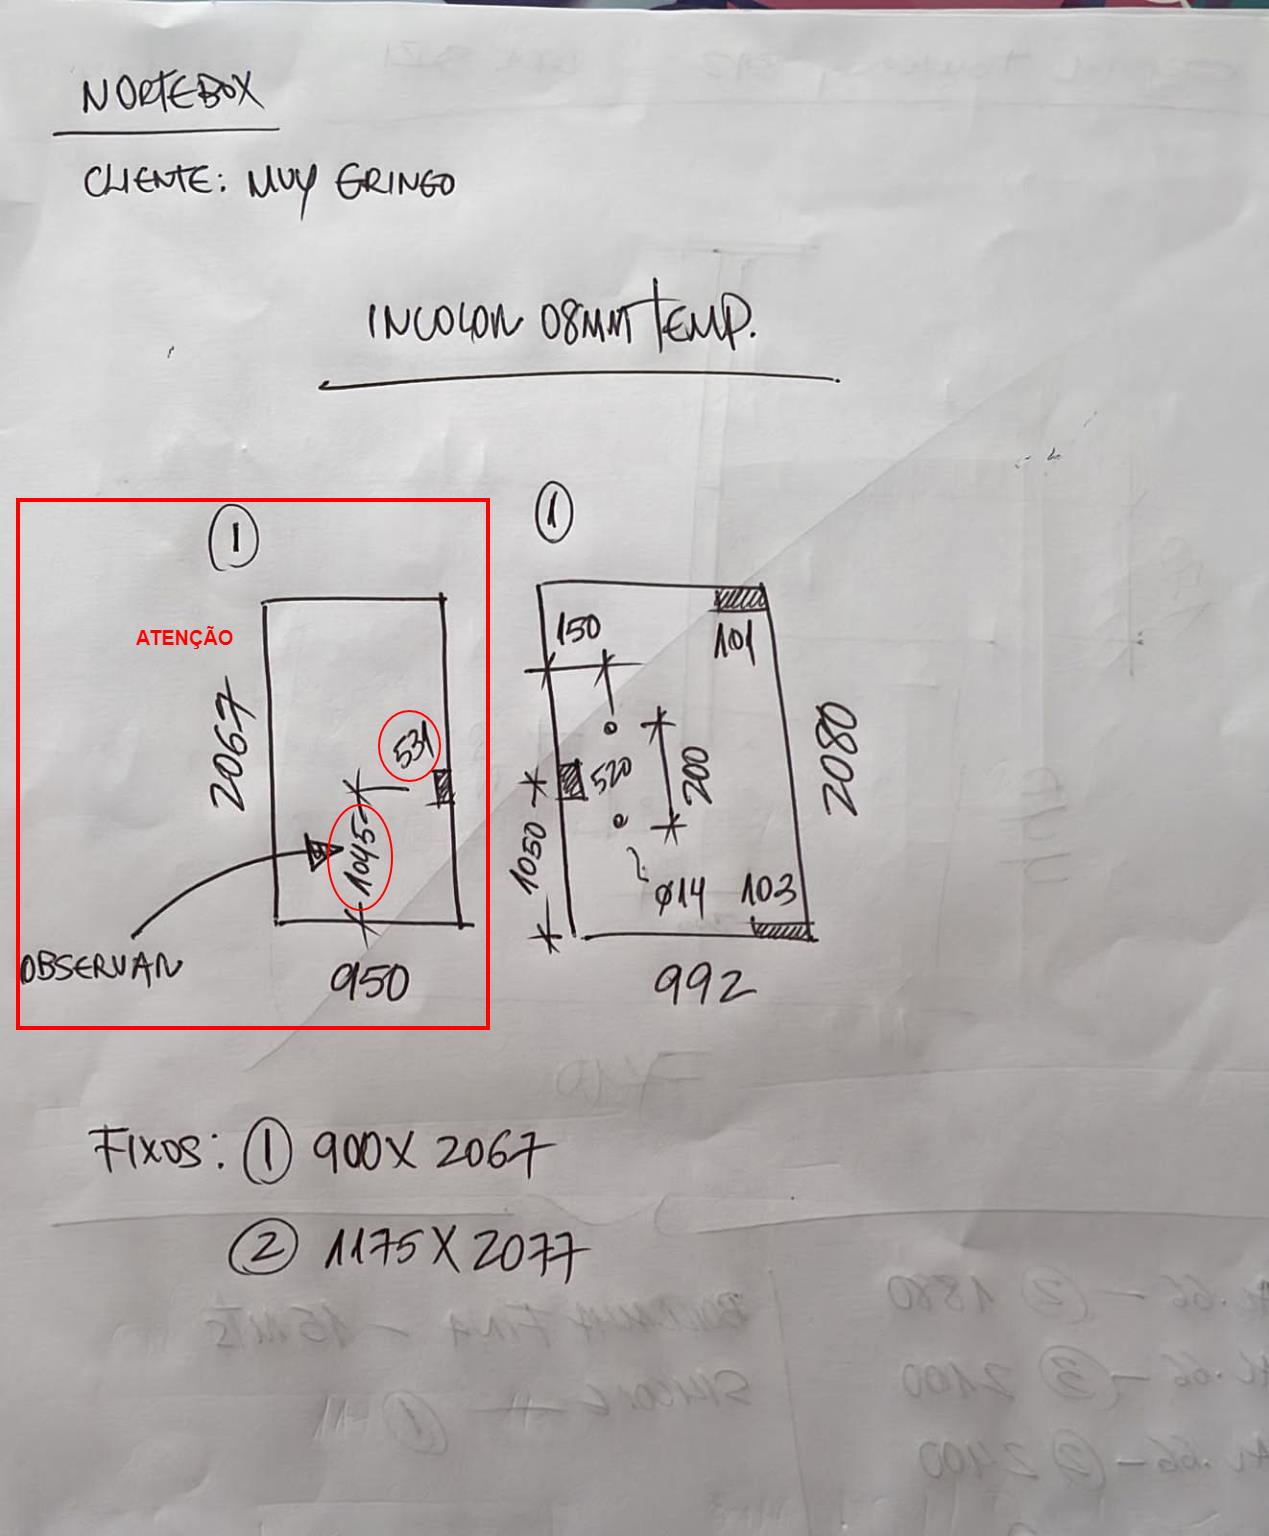 NORTEBOX
CLIENTE: MUY GRINGO
INCOLOR 08MM TEMP.
1
1
ATENÇÃO
150
101
2067
531
520
200
2080
1045
1050
Ø14
103
OBSERVAR
950
992
FIXOS: 1 900X2067
2 1175X2077